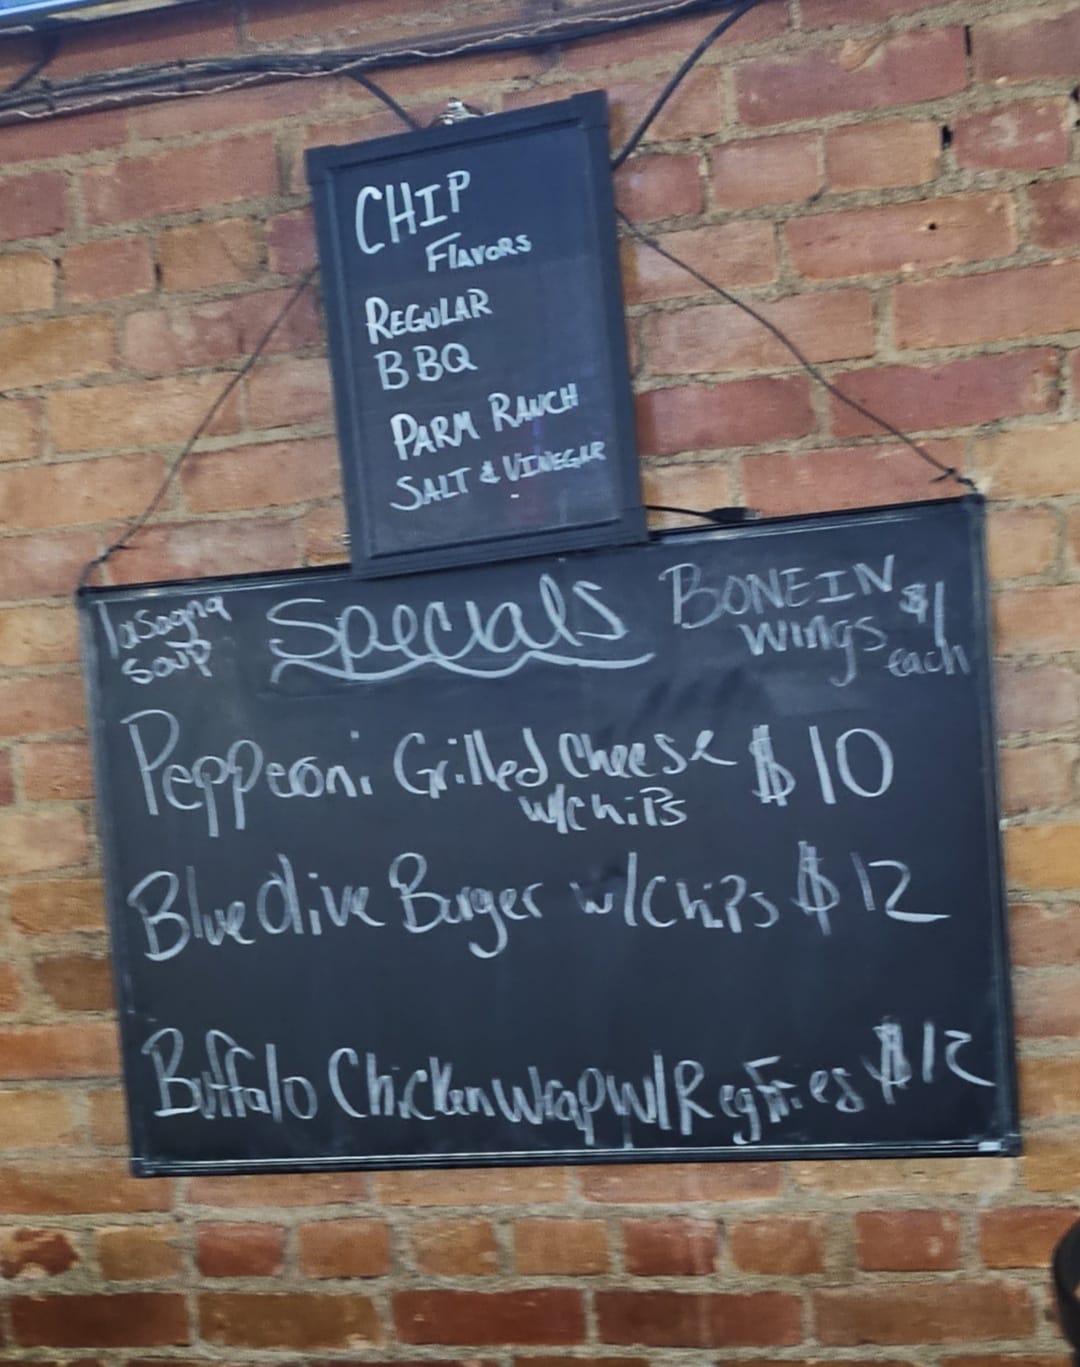 CHIP
FLAVORS
REGULAR
BBQ
PARM RANCH
SALT & VINEGAR
lasagna
soup
Specials
BONE IN
wings $1
each
Pepperoni Grilled Cheese $10
w/chips
Blue Olive Burger w/Chips $12
Buffalo Chicken Wrap w/ Reg Fries $12